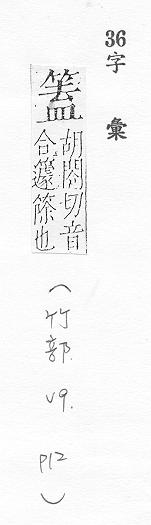 36字彙
篕
胡閤切音
合籧篨也
(竹部 v9. p12)